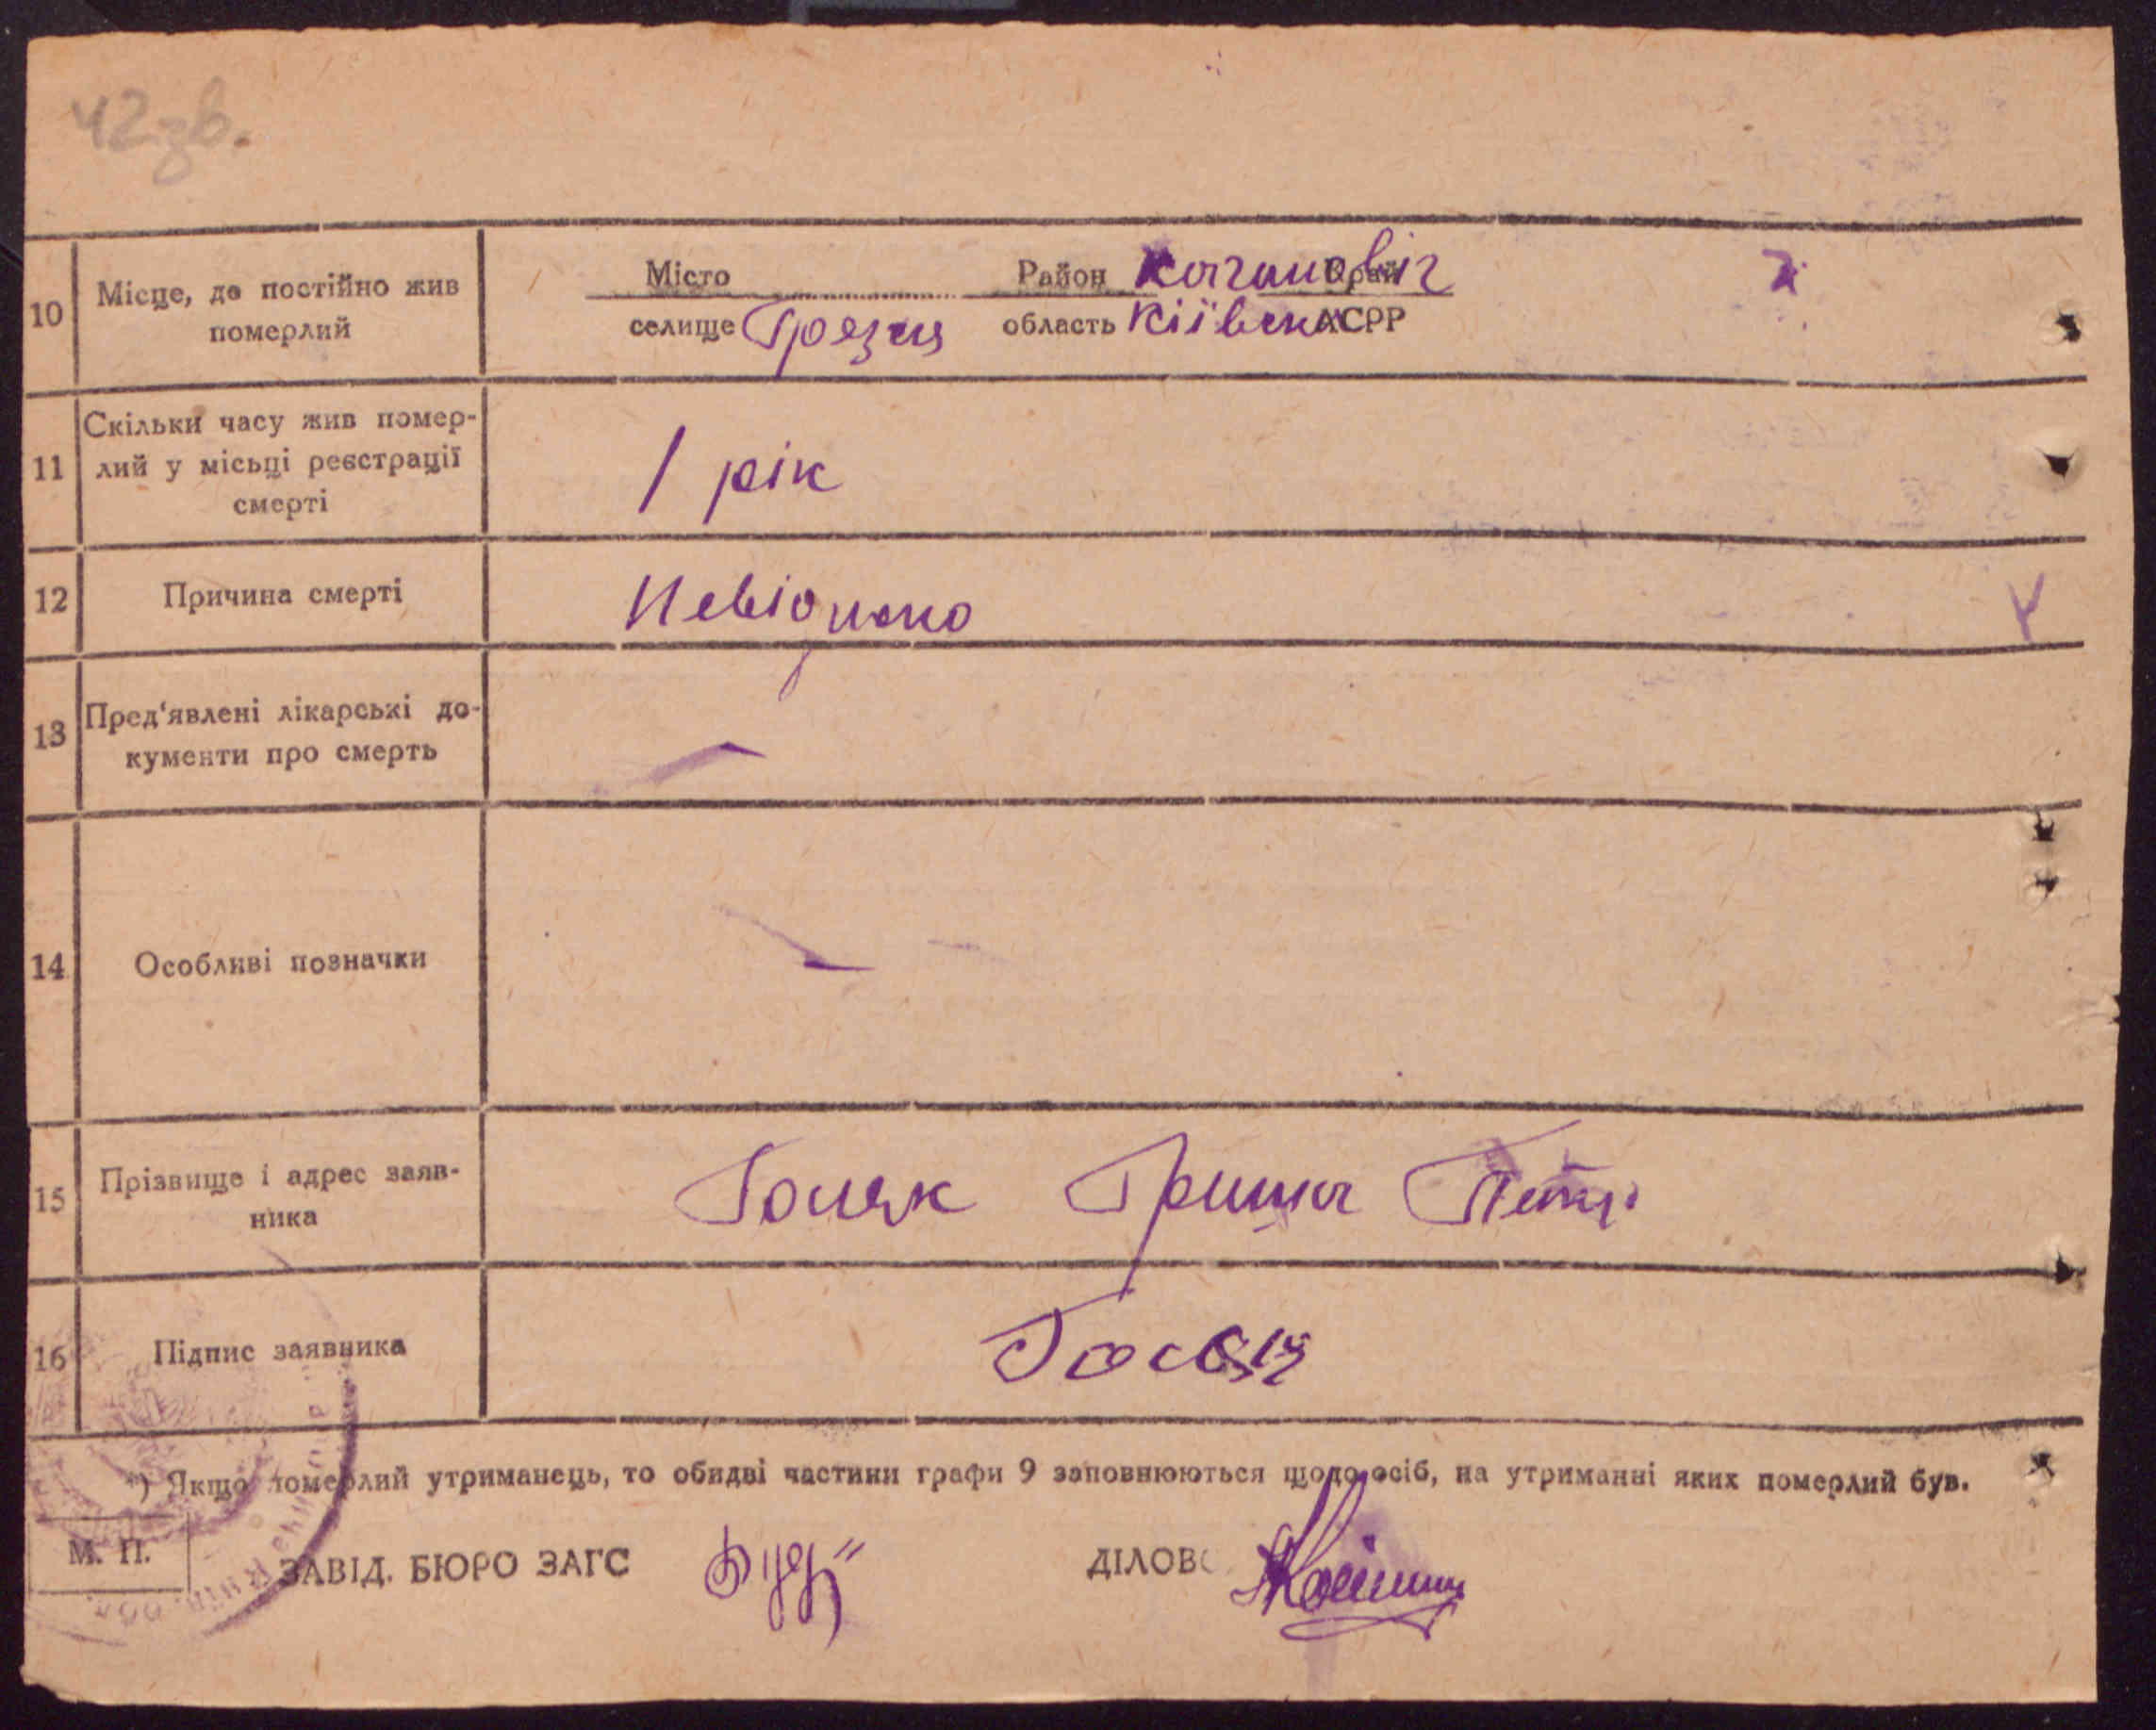 42зв.
10 Місце, де постійно жив померлий
Місто Район Каганович Край
селище Грезля область Київська АСРР
11 Скільки часу жив помер-
лий у місьці реєстрації
смерті
1 рік
12 Причина смерті Невідомо
13 Пред'явлені лікарські до-
кументи про смерть
14 Особливі позначки
15 Прізвище і адрес заяв-
ника
Гриша
16 Підпис заявника
*) Якщо померлий утриманець, то обидві частини графи 9 заповнюються щодо осіб, на утриманні яких померлий був.
М. П.
ЗАВІД. БЮРО ЗАГС ДІЛОВ